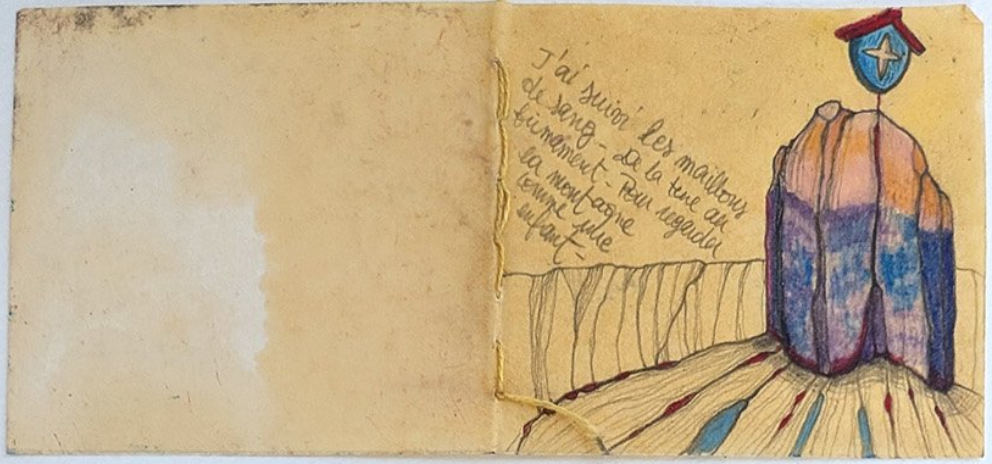 J'ai suivi les maillons
de sang - De la terre au
firmament - Pour regarder
la montagne
comme une
enfant -